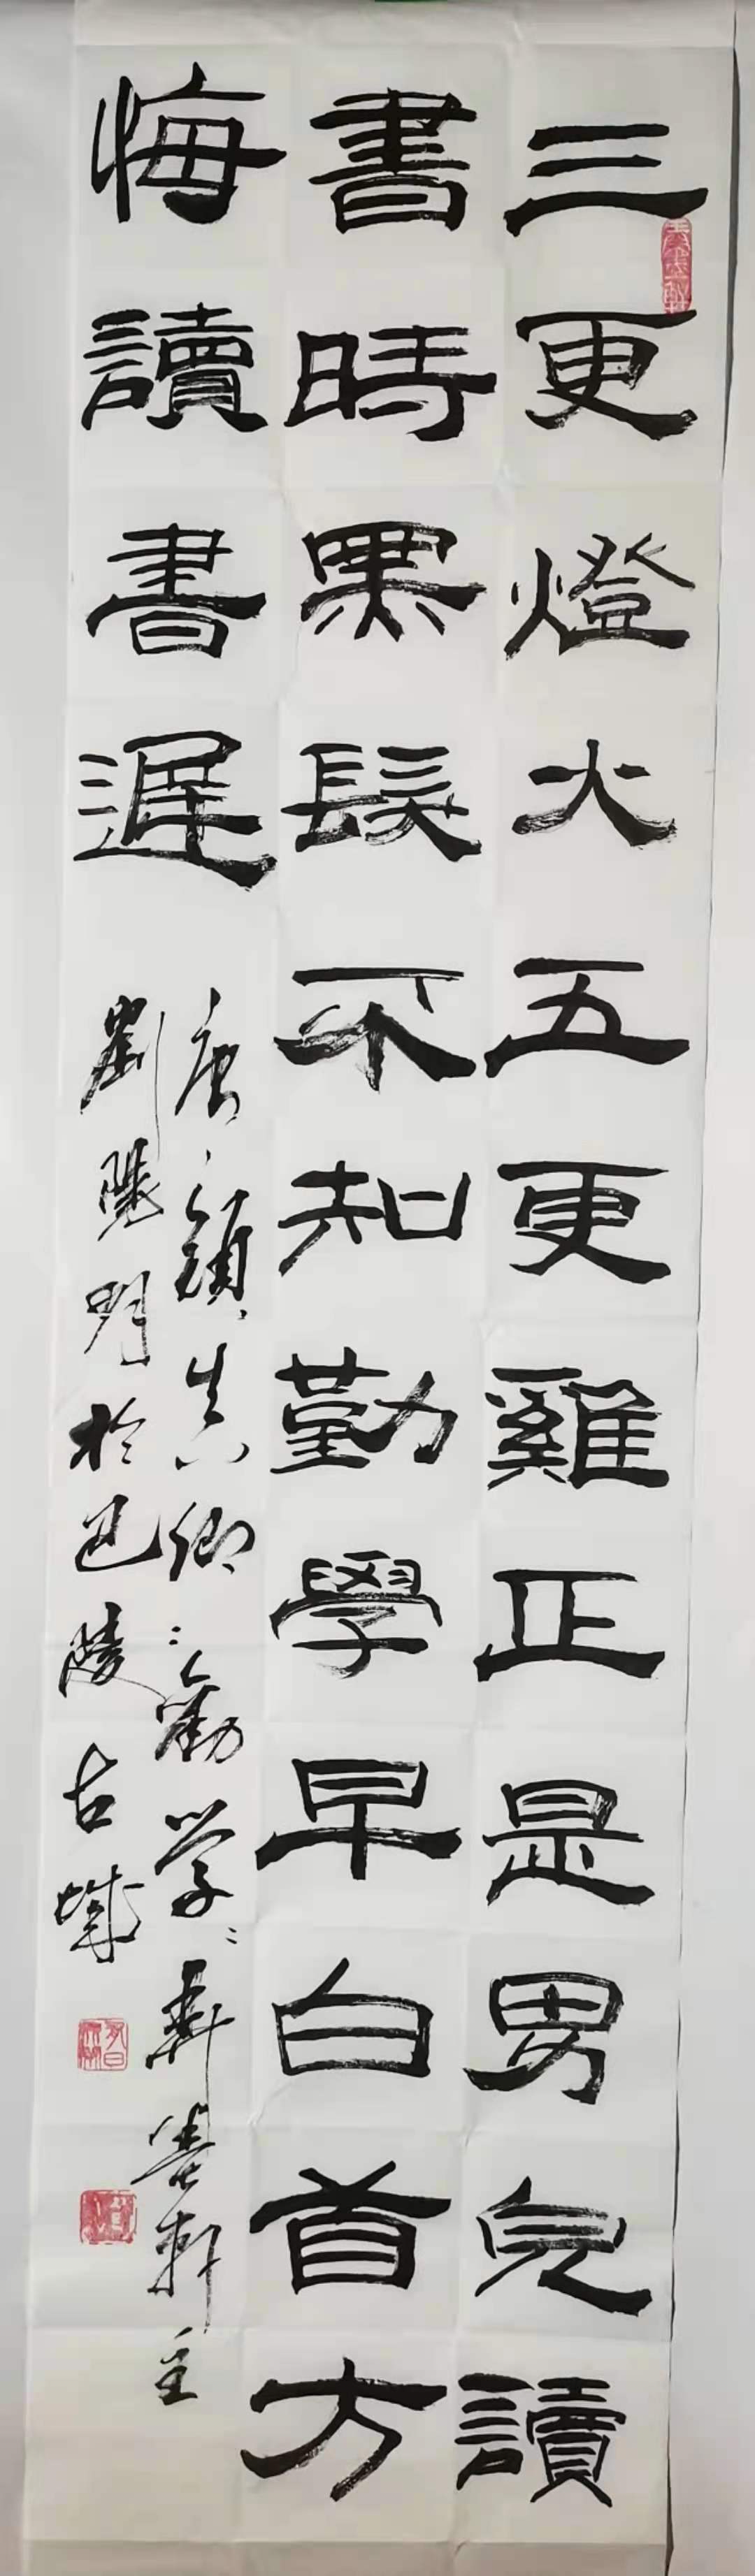 三更燈火五更雞正是男兒讀
書時黑髮不知勤學早白首方
悔讀書遲
唐顏真卿勸学軒主
劉曉明於巴陵古城